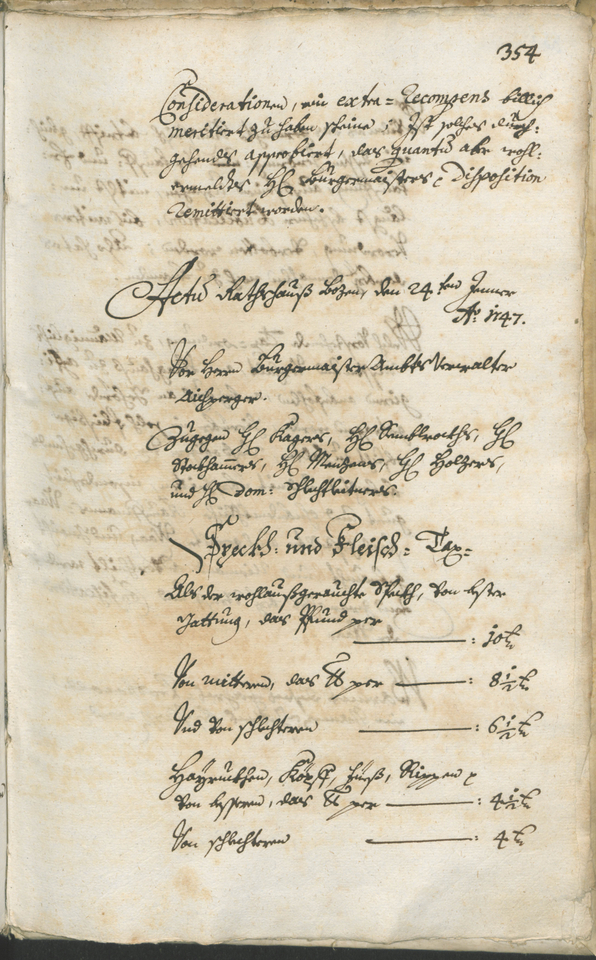 354
Considerationen, ein extra=Recompens billich
meritiert zu haben scheine; Ist solches durch=
gehendes approbiert, das quantum aber wohl=
ermeltes H: Burgermaisters Disposition
remittiert worden.
Actum Rathshauß Bozen, den 24ten Jenner
Ao. 1747.
Vor Herrn Burgermaister Ambts Verwalter
Aichperger.
Zugegen H: Kagers, H: Sembleroths, H:
Stockhamers, H: Menzens, H: Holzers,
und H: Dom: Schlechtleitners.
Speckh= und Fleisch=Tax=
Als der wohlaußgerauchte Speckh, von bester
Gattung, das Pfund per
: 10 k
Von mitteren, das lb per : 8 1/2 k
Und von schlechteren : 6 1/2 k
Köpf, Füeß, Rippen
von besseren, das lb per : 4 1/2 k
Von schlechteren : 4 k